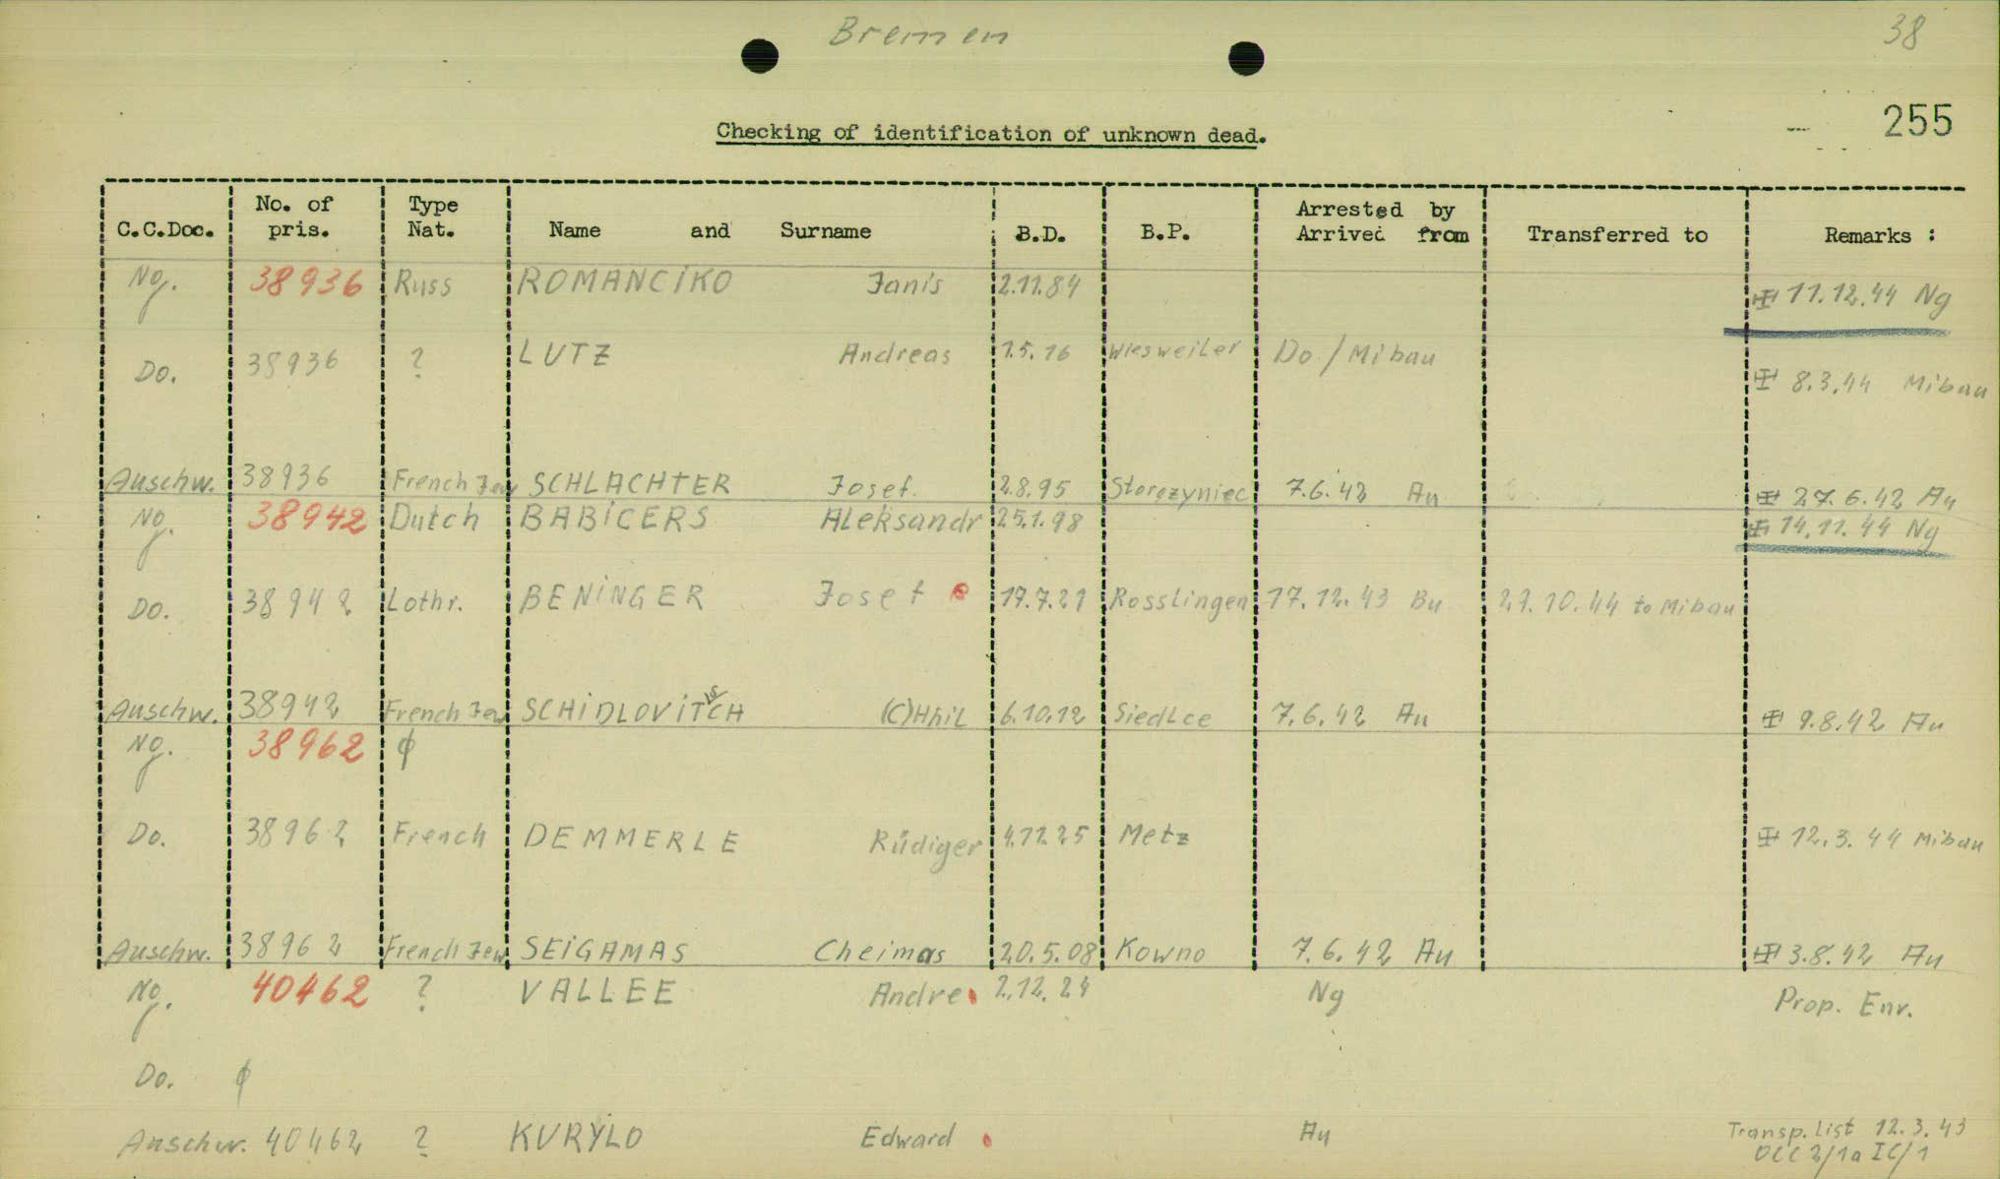 Bremen
38
255
Checking of identification of unknown dead.
C.C.Doc. No. of pris. Type Nat. Name and Surname B.D. B.P. Arrested by Arrived from Transferred to Remarks :
Ng. 38936 Russ ROMANCIKO Janis 2.11.84 11.12.44 Ng
Do. 38936 ? LUTZ Andreas 1.5.16 Wiesweiler Do/Mibau 8.3.44 Mibau
Auschw. 38936 French Jew SCHLACHTER Josef. 2.8.95 Storozyniec 7.6.42 Au 27.6.42 Au
Ng. 38942 Dutch BABICERS ALeksandr 25.1.98 14.11.44 Ng
Do. 38942 Lothr. BENINGER Josef 17.7.21 Rosslingen 17.12.43 Bu 21.10.44 to Mibau
Auschw. 38942 French Jew SCHIDLOVITCH is (C)HhiL 6.10.12 SiedLce 7.6.42 Au 9.8.42 Au
Ng. 38962 ϕ
Do. 38962 French DEMMERLE Rüdiger 4.12.25 Metz 12.3.44 Mibau
Auschw. 38962 French Jew SEIGAMAS Cheimas 20.5.08 Kowno 7.6.42 Au 3.8.42 Au
Ng. 40462 ? VALLEE Andre 2.12.24 Ng Prop. Enr.
Do. ϕ
Auschw. 40462 ? KURYLO Edward Au Transp. List 12.3.43
OCC 2/1a IC/1